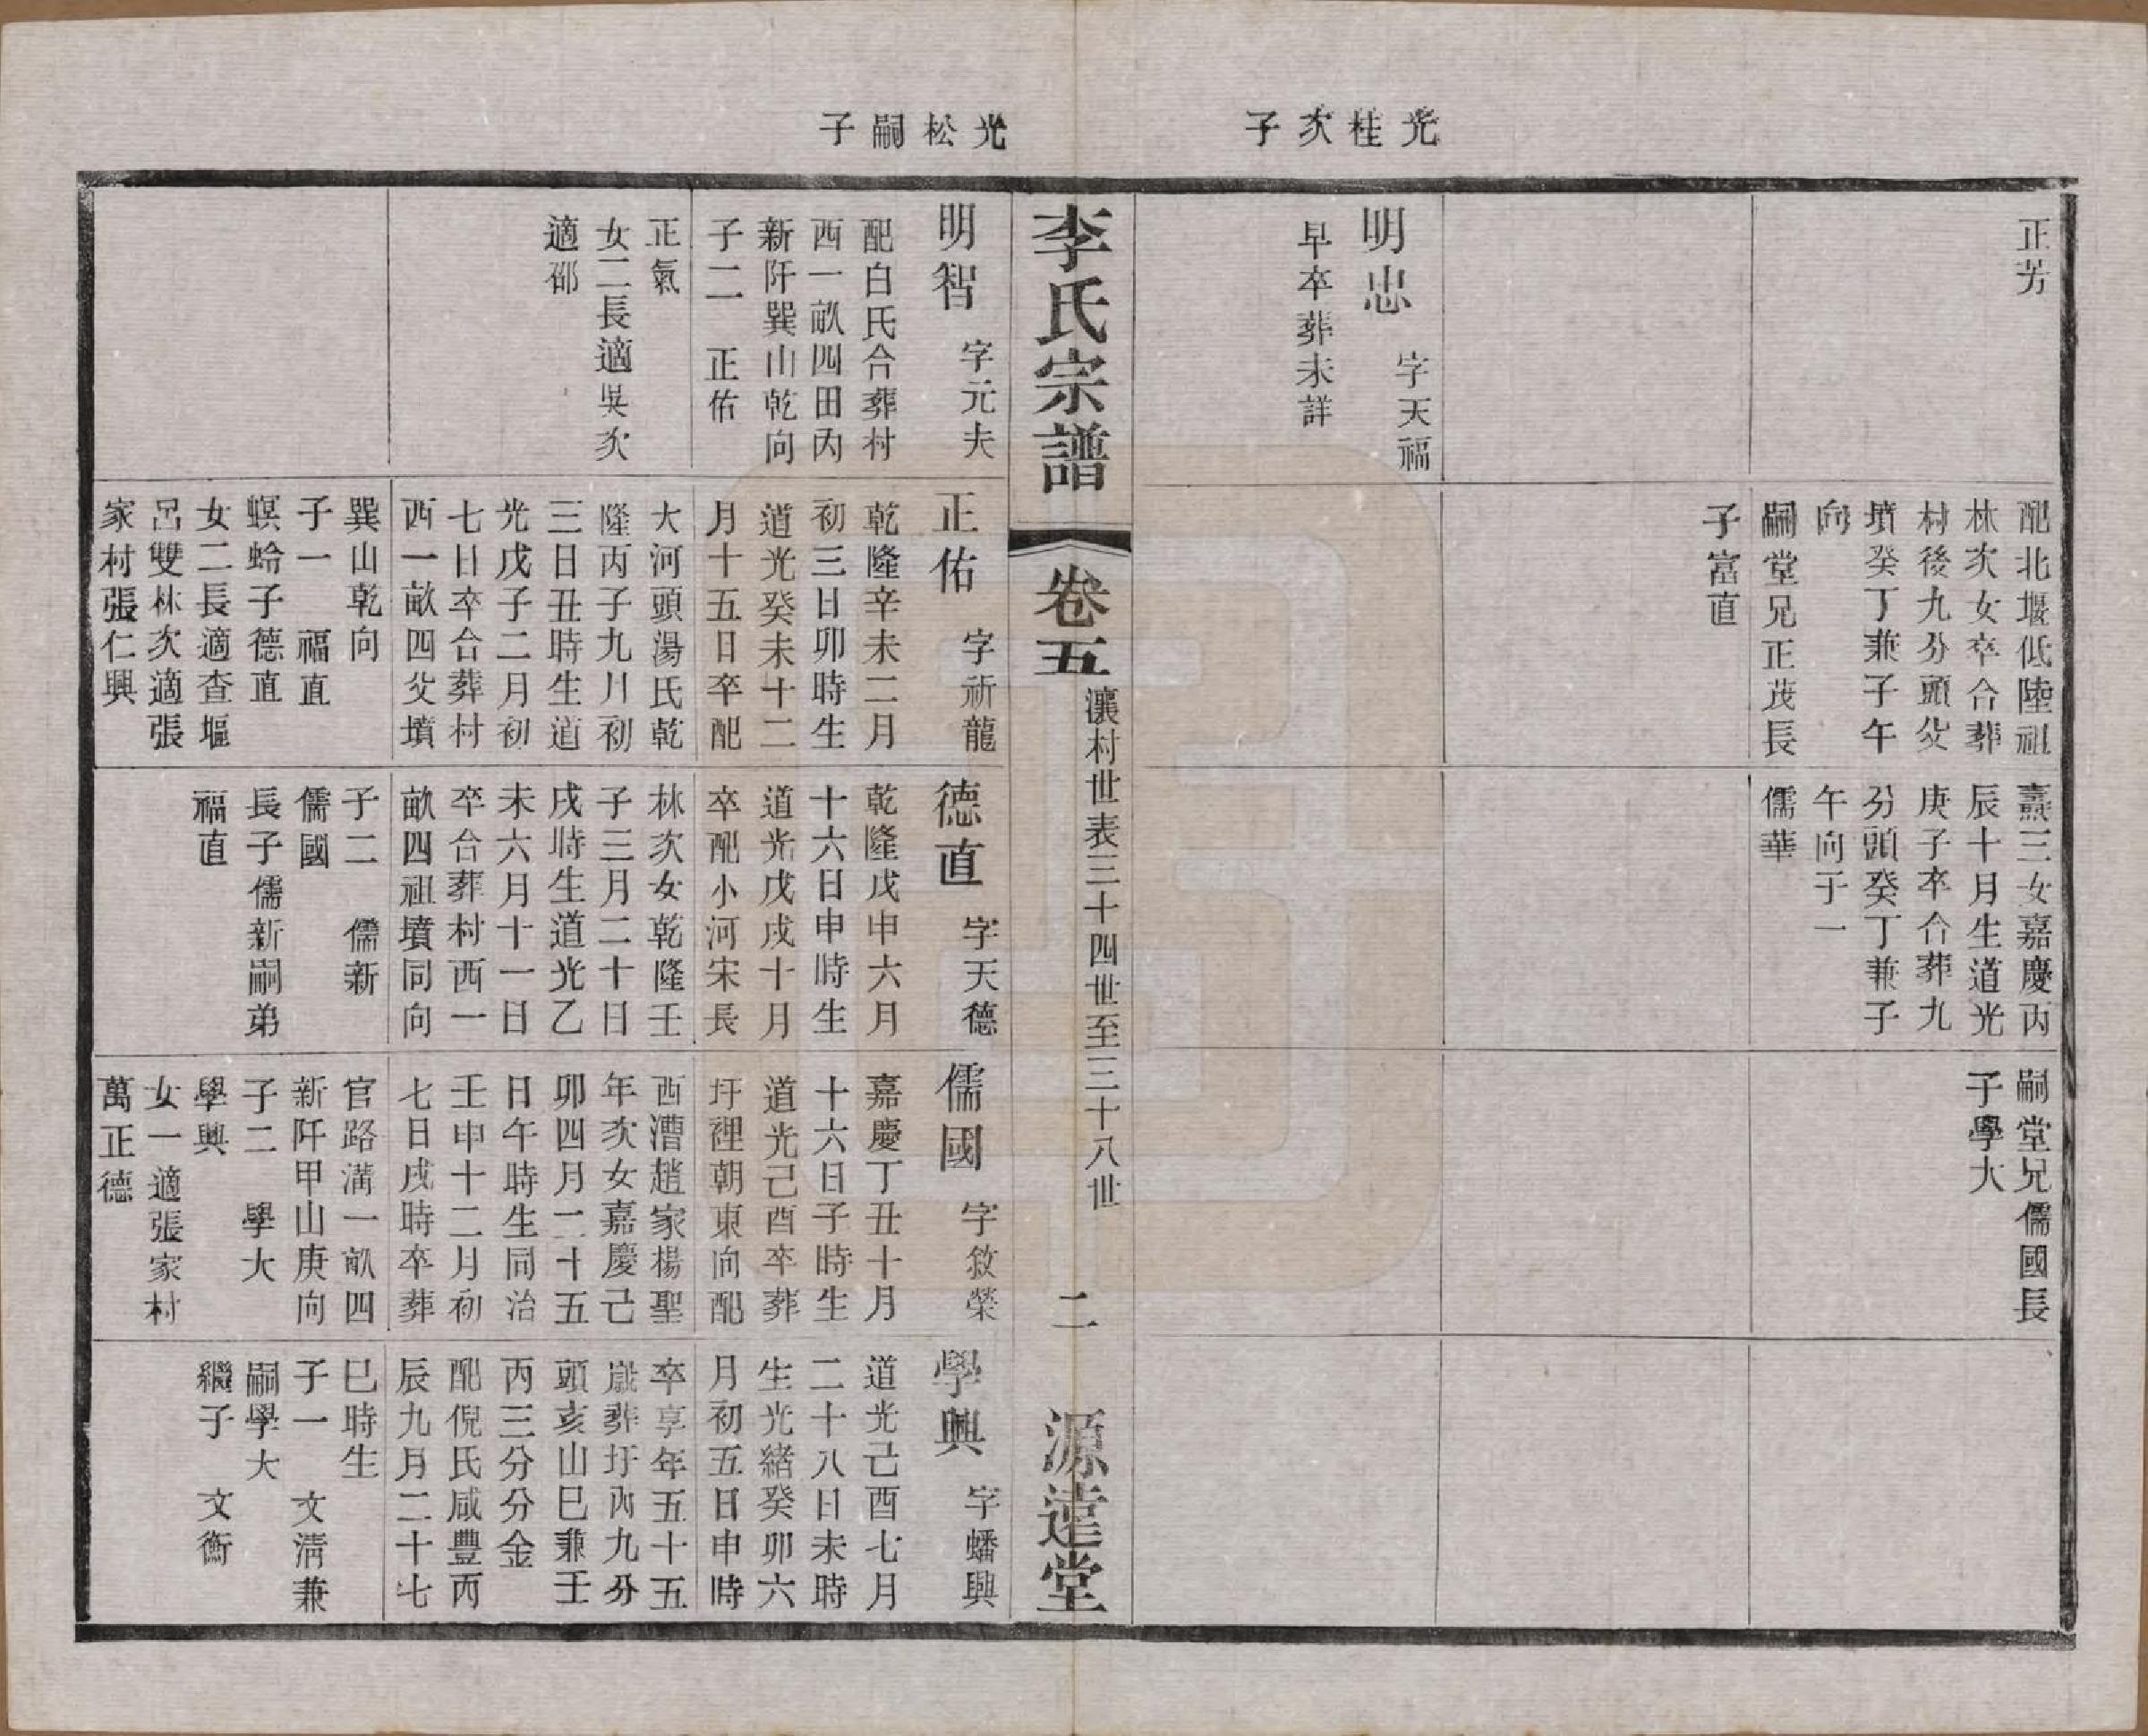 光桂次子
正芳
明忠 字天福
早卒葬未詳
配北堰低陸祖
林次女卒合葬
村後九分頭父
墳癸丁兼子午
向
嗣堂兄正茂長
子富直
燾三女嘉慶丙
辰十月生道光
庚子卒合葬九
分頭癸丁兼子
午向子一
儒華
嗣堂兄儒國長
子學大
李氏宗譜
卷五
瀼村世表三十四世至三十八世
二
源遠堂
光松嗣子
明智 字元夫
配白氏合葬村
西一畝四田內
新阡巽山乾向
子二 正佑
正氣
女二長適吳次
適邵
正佑 字祈龍
乾隆辛未二月
初三日卯時生
道光癸未十二
月十五日卒配
大河頭湯氏乾
隆丙子九月初
三日丑時生道
光戊子二月初
七日卒合葬村
西一畝四父墳
巽山乾向
子一 福直
螟蛉子德直
女二長適查堰
呂雙林次適張
家村張仁興
德直 字天德
乾隆戊申六月
十六日申時生
道光戊戌十月
卒配小河宋長
林次女乾隆壬
子三月二十日
戌時生道光乙
未六月十一日
卒合葬村西一
畝四祖墳同向
子二 儒新
儒國
長子儒新嗣弟
福直
儒國 字敘榮
嘉慶丁丑十月
十六日子時生
道光己酉卒葬
圩裡朝東向配
西漕趙家楊聖
年次女嘉慶己
卯四月二十五
日午時生同治
壬申十二月初
七日戌時卒葬
官路溝一畝四
新阡甲山庚向
子二 學大
學興
女一適張家村
萬正德
學興 字蟠興
道光己酉七月
二十八日未時
生光緒癸卯六
月初五日申時
卒享年五十五
歲葬圩內九分
頭亥山巳兼壬
丙三分分金
配倪氏咸豐丙
辰九月二十七
巳時生
子一 文清兼
嗣學大
繼子 文衡